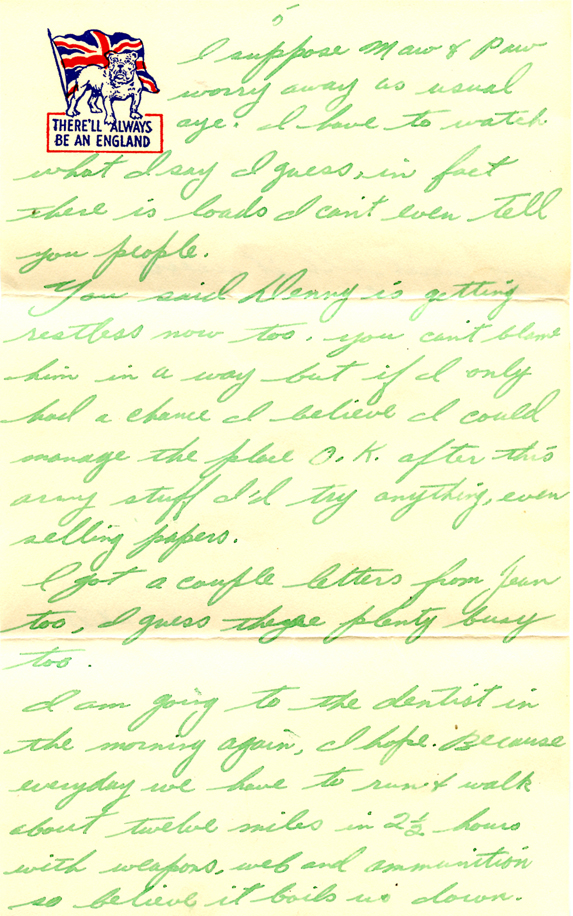 5
I suppose Maw & Paw
worry away as usual
THERE'LL ALWAYS
BE AN ENGLAND
aye. I have to watch
what I say I guess, in fact
there is loads I can't even tell
you people.
You said Denny is getting
restless now too. you can't blame
him in a way but if I only
had a chance I believe I could
manage the place O.K. after this
army stuff I'd try anything, even
selling papers.
I got a couple letters from Jean
too, I guess they're plenty busy
too.
I am going to the dentist in
the morning again, I hope. Because
everyday we have to run & walk
about twelve miles in 2½ hours
with weapons, web and ammunition
so believe it boils us down.